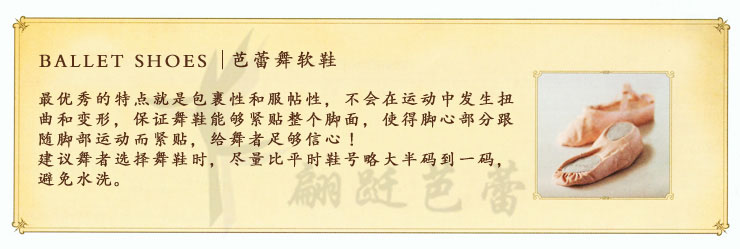 BALLET SHOES | 芭蕾舞软鞋
最优秀的特点就是包裹性和服帖性，不会在运动中发生扭
曲和变形，保证舞鞋能够紧贴整个脚面，使得脚心部分跟
随脚部运动而紧贴，给舞者足够信心！
建议舞者选择舞鞋时，尽量比平时鞋号略大半码到一码，
避免水洗。
翩跹芭蕾